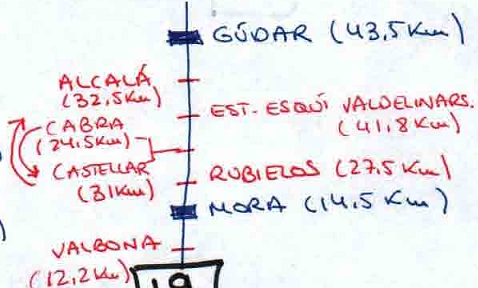 GÚDAR (43,5 Km)
ALCALÁ
(32,5Km)
EST. ESQUÍ VALDELINARS.
(41,8 Km)
CABRA
(24,5Km)
CASTELLAR
(31Km)
RUBIELOS (27,5 Km)
MORA (14,5 Km)
VALBONA
(12,2Km)
19